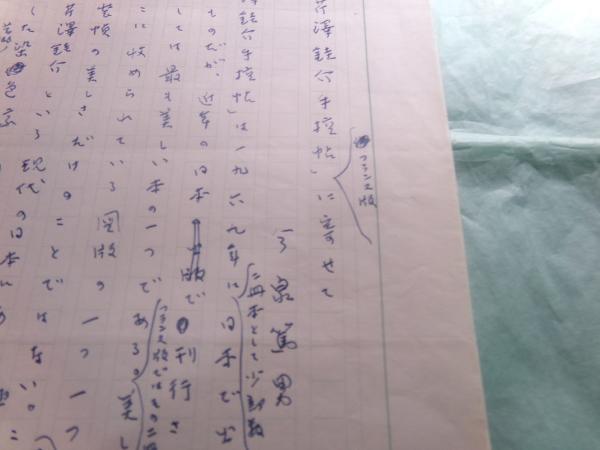 芹澤銈介手控帖」に寄せて
フランス版
今泉篤男
澤銈介手控帖」は一九六九年に日本で出
二冊本として少部数
ものだが、近年の日本出版で刊行さ
しては最も美しい本の一つである。美し
フランス版ではその二
に収められている図版の一つ一つ
装幀の美しさだけのことではない。
芹澤銈介という現代の日本に
した染色家